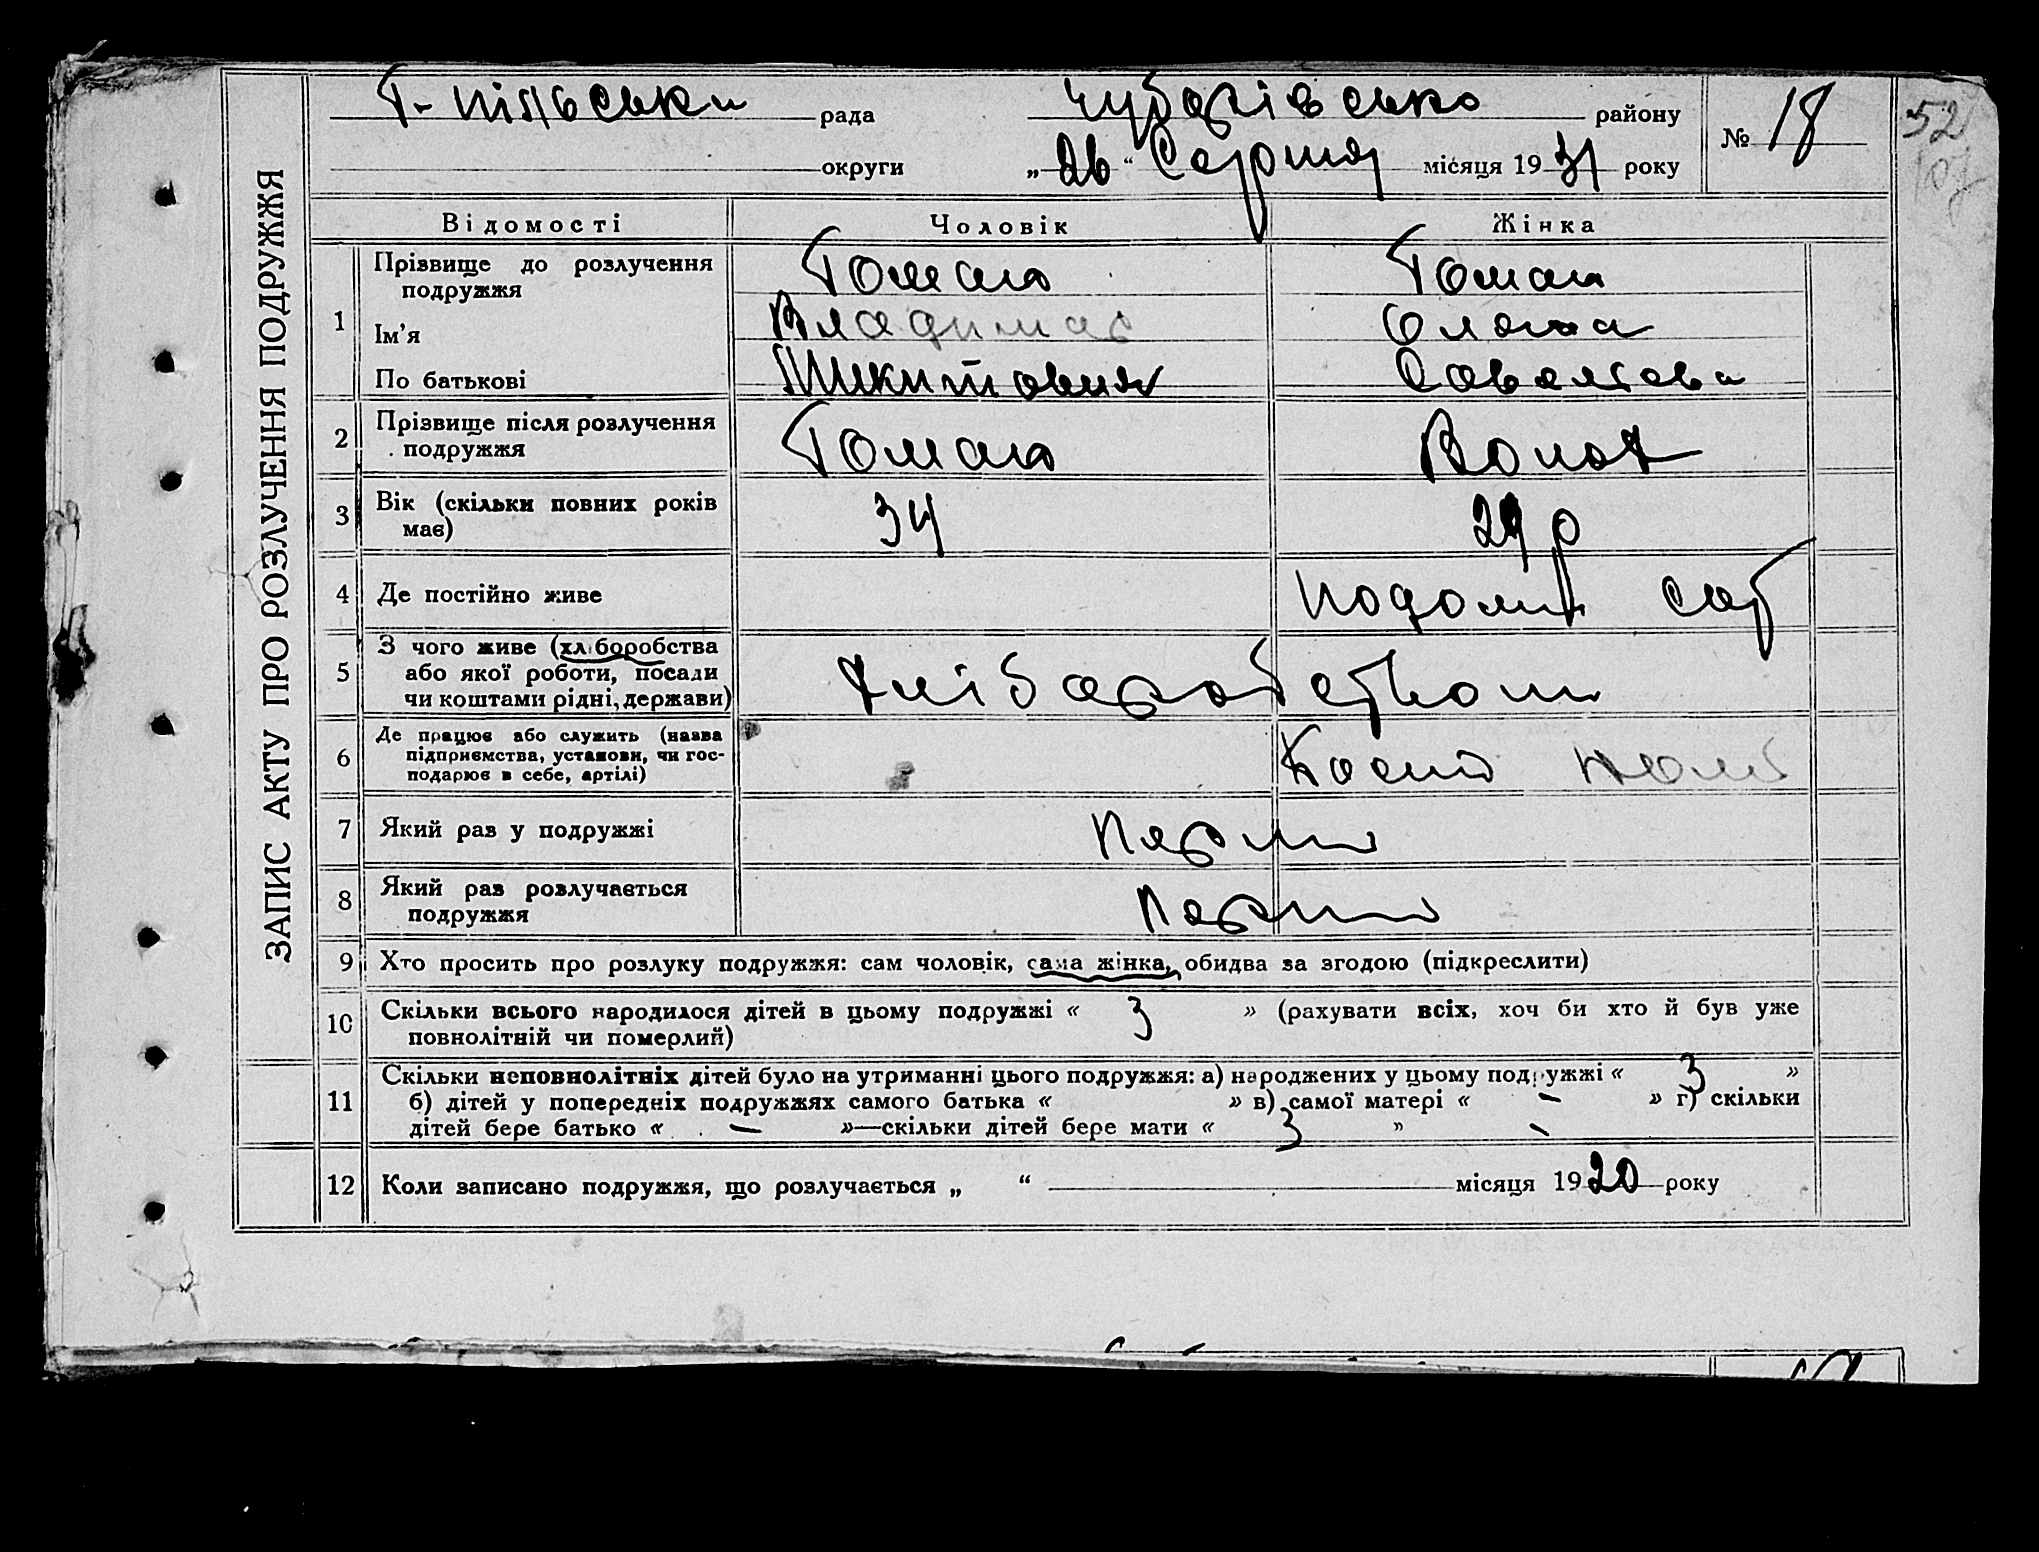 ЗАПИС АКТУ ПРО РОЗЛУЧЕННЯ ПОДРУЖЖЯ
Г-пільська рада Чубарівсько району № 18 52
округи „26“ Серпня місяця 1931 року
Відомості Чоловік Жінка
1 Прізвище до розлучення подружжя Гомаю Гомаю
Ім'я Владимир Олена
По батькові Микитович Савелієва
2 Прізвище після розлучення подружжя Гомаю
3 Вік (скільки повних років має) 34 29 р
4 Де постійно живе
5 З чого живе (хліборобства або якої роботи, посади чи коштами рідні, держави) Хліборобством
6 Де працює або служить (назва підприємства, установи, чи господарює в себе, артілі)
7 Який раз у подружжі Перший
8 Який раз розлучається подружжя Перший
9 Хто просить про розлуку подружжя: сам чоловік, сама жінка, обидва за згодою (підкреслити)
10 Скільки всього народилося дітей в цьому подружжі « 3 » (рахувати всіх, хоч би хто й був уже
повнолітній чи померлий)
11 Скільки неповнолітніх дітей було на утриманні цього подружжя: а) народжених у цьому подружжі « 3 »
б) дітей у попередніх подружжях самого батька « » в) самої матері « – » г) скільки
дітей бере батько « – »—скільки дітей бере мати « 3 » –
12 Коли записано подружжя, що розлучається „ “ місяця 1920 року